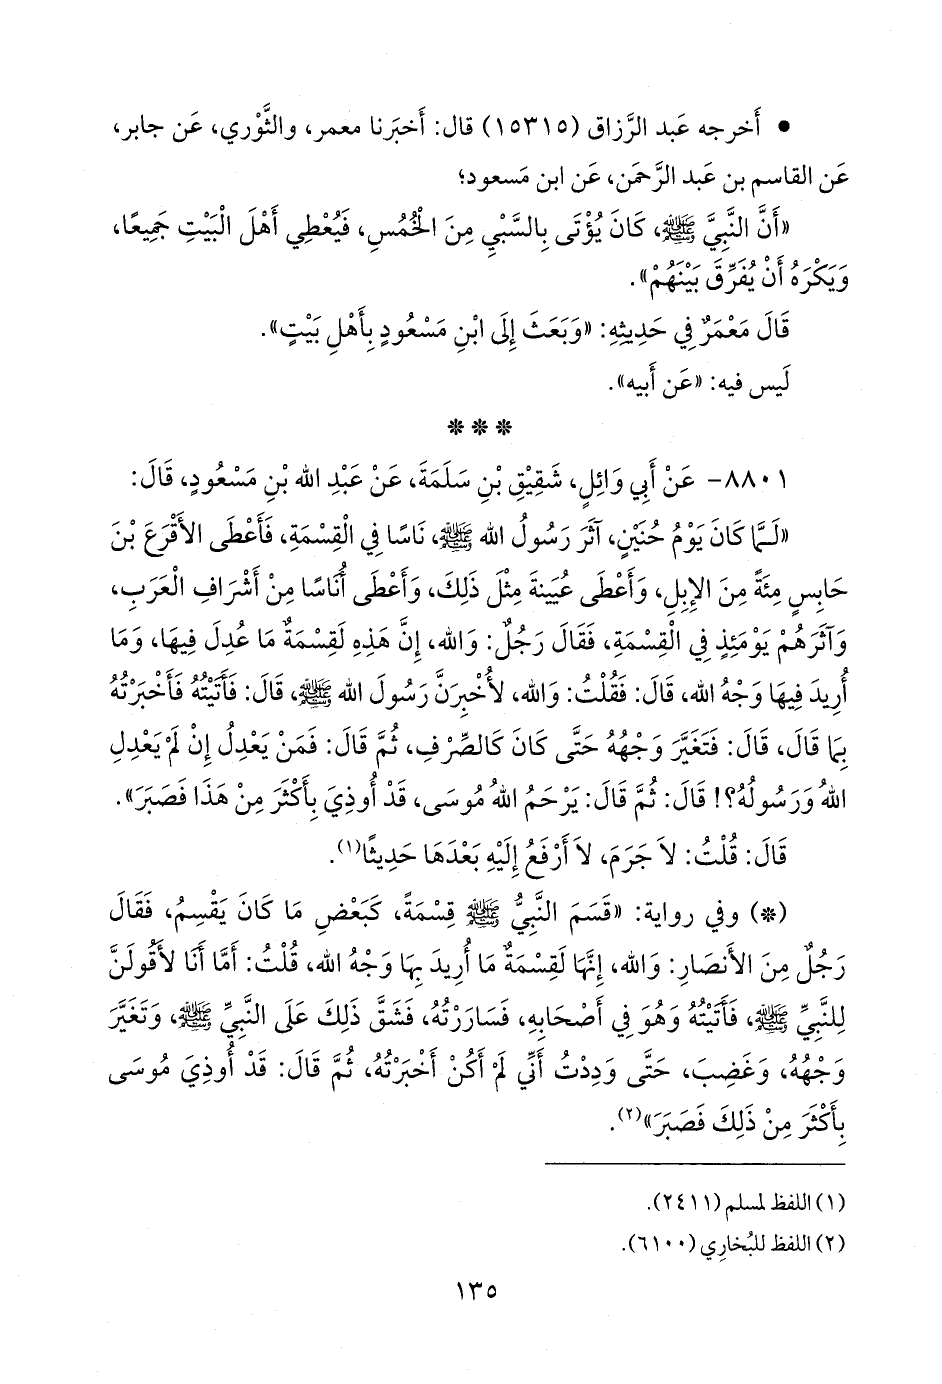 • أَخرجه عَبد الرَّزاق (١٥٣١٥) قال: أَخبَرنا معمر، والثَّوْري، عَن جابر،
عَن القاسم بن عَبد الرَّحمَن، عَن ابن مَسعود؛
«أَنَّ النَّبِيَّ ﷺ، كَانَ يُؤْتَى بِالسَّبْيِ مِنَ الْخُمُسِ، فَيُعْطِي أَهْلَ الْبَيْتِ جَمِيعًا،
وَيَكْرَهُ أَنْ يُفَرِّقَ بَيْنَهُمْ».
قَالَ مَعْمَرٌ فِي حَدِيثِهِ: «وَبَعَثَ إِلَى ابْنِ مَسْعُودٍ بِأَهْلِ بَيْتٍ».
لَيس فيه: «عَن أَبيه».
* * *
٨٨٠١- عَنْ أَبِي وَائِلٍ، شَقِيقِ بْنِ سَلَمَةَ، عَنْ عَبْدِ الله بْنِ مَسْعُودٍ، قَالَ:
«لَـمَّا كَانَ يَوْمُ حُنَيْنٍ، آثَرَ رَسُولُ الله ﷺ، نَاسًا فِي الْقِسْمَةِ، فَأَعْطَى الأَقْرَعَ بْنَ
حَابِسٍ مِئَةً مِنَ الإِبِلِ، وَأَعْطَى عُيَينةَ مِثْلَ ذَلِكَ، وَأَعْطَى أُنَاسًا مِنْ أَشْرَافِ الْعَرَبِ،
وَآثَرَهُمْ يَوْمَئِذٍ فِي الْقِسْمَةِ، فَقَالَ رَجُلٌ: وَالله، إِنَّ هَذِهِ لَقِسْمَةٌ مَا عُدِلَ فِيهَا، وَمَا
أُرِيدَ فِيهَا وَجْهُ الله، قَالَ: فَقُلْتُ: وَالله، لأُخْبِرَنَّ رَسُولَ الله ﷺ، قَالَ: فَأَتَيْتُهُ فَأَخْبَرْتُهُ
بِمَا قَالَ، قَالَ: فَتَغَيَّرَ وَجْهُهُ حَتَّى كَانَ كَالصِّرْفِ، ثُمَّ قَالَ: فَمَنْ يَعْدِلُ إِنْ لَمْ يَعْدِلِ
اللهُ وَرَسُولُهُ؟! قَالَ: ثُمَّ قَالَ: يَرْحَمُ اللهُ مُوسَى، قَدْ أُوذِيَ بِأَكْثَرَ مِنْ هَذَا فَصَبَرَ».
قَالَ: قُلْتُ: لاَ جَرَمَ، لاَ أَرْفَعُ إِلَيْهِ بَعْدَهَا حَدِيثًا(١).
(*) وفي رواية: «قَسَمَ النَّبِيُّ ﷺ قِسْمَةً، كَبَعْضِ مَا كَانَ يَقْسِمُ، فَقَالَ
رَجُلٌ مِنَ الأَنصَارِ: وَالله، إِنَّهَا لَقِسْمَةٌ مَا أُرِيدَ بِهَا وَجْهُ الله، قُلْتُ: أَمَّا أَنَا لأَقُولَنَّ
لِلنَّبِيِّ ﷺ، فَأَتَيْتُهُ وَهُوَ فِي أَصْحَابِهِ، فَسَارَرْتُهُ، فَشَقَّ ذَلِكَ عَلَى النَّبِيِّ ﷺ، وَتَغَيَّرَ
وَجْهُهُ، وَغَضِبَ، حَتَّى وَدِدْتُ أَنِّي لَمْ أَكُنْ أَخْبَرْتُهُ، ثُمَّ قَالَ: قَدْ أُوذِيَ مُوسَى
بِأَكْثَرَ مِنْ ذَلِكَ فَصَبَرَ»(٢).
(١) اللفظ لمسلم (٢٤١١).
(٢) اللفظ للبُخاري (٦١٠٠).
١٣٥